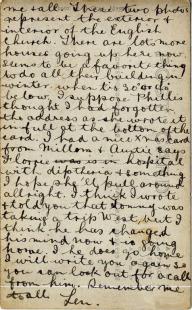 me call. These two photos
represent the exterior &
interior of the English
Church. There are lots more
houses going up here now
seems to be a favorite thing
to do all their building in
winter when it's 30° or 40
below. I suppose Phillis
thought I had forgotten
the address as she wrote it
in full at the bottom of the
card. I had a nice Xmas card
from Millom & Auntie says
Lorrie was in hospital
with diptheria & something
I hope she'll pull around
all right. I think I wrote
& told you that Tommy was
taking a trip West, but I
think he has changed
his mind now & is going
home. If he does go home
I will write you again so
you can look out for a call
from him. Remember me
to all
Len.